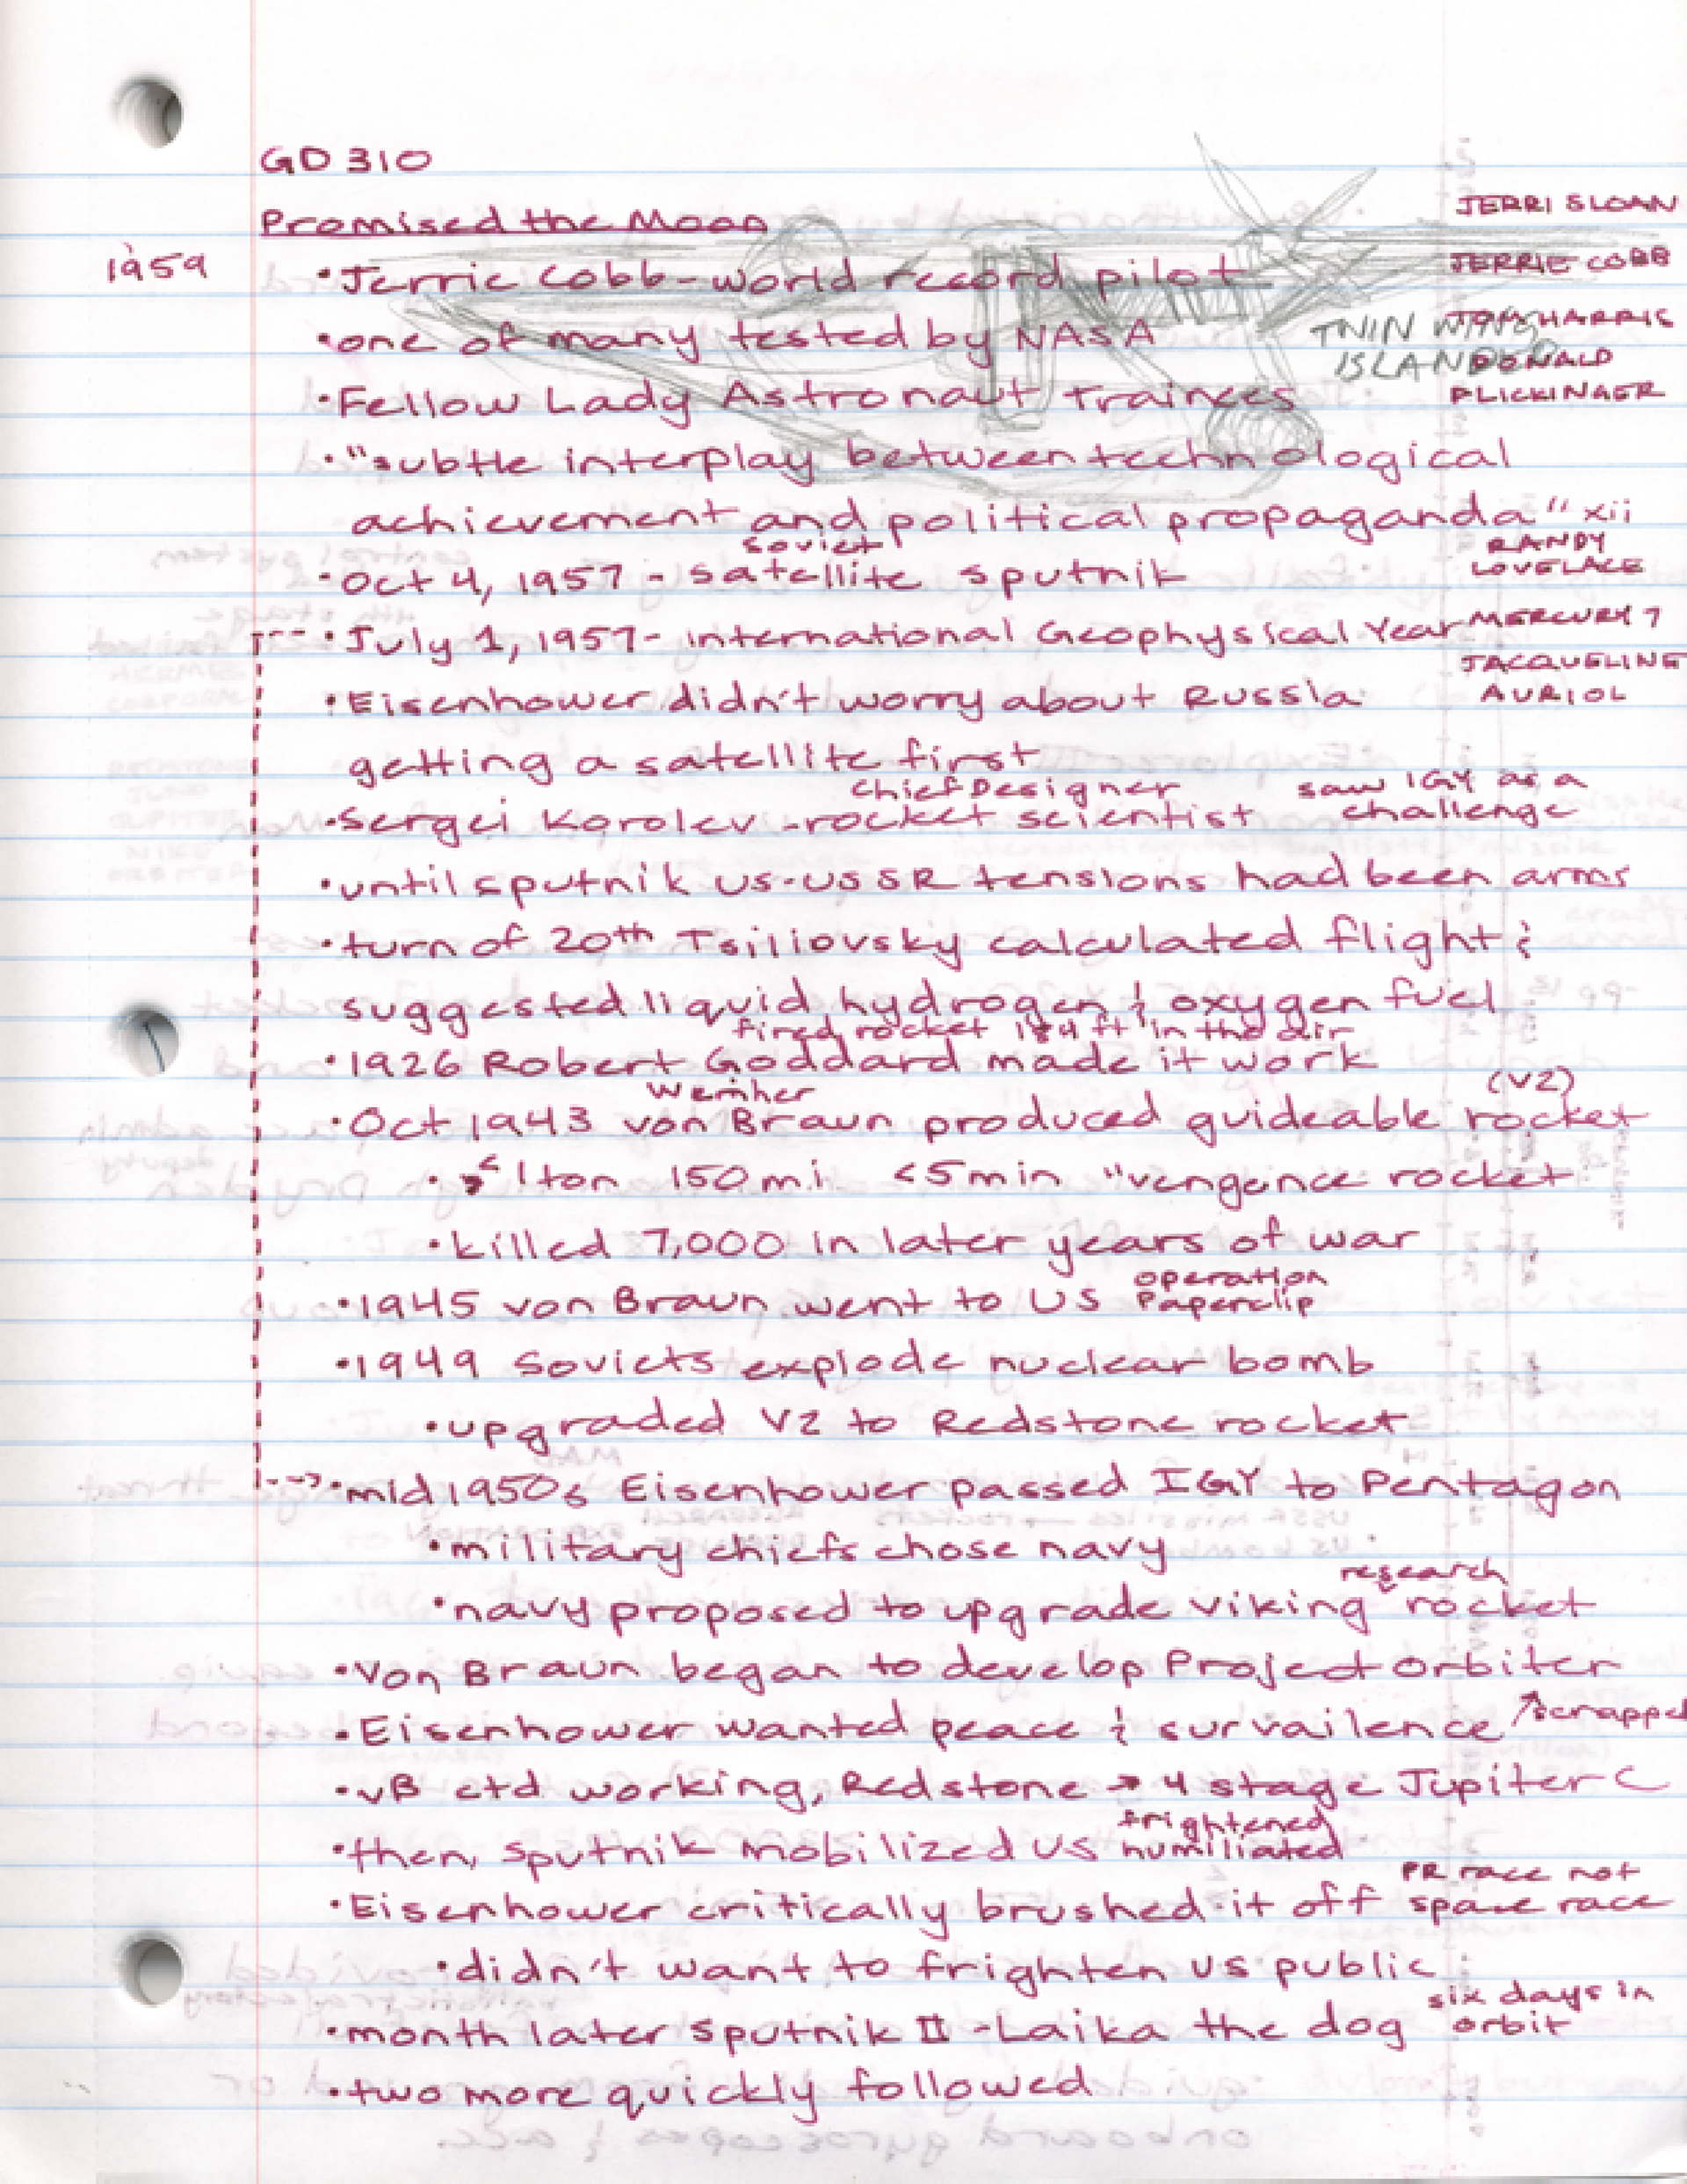 GD 310
Promised the Moon
JERRI SLOAN
1959
• Jerrie Cobb - world record pilot
JERRIE COBB
• one of many tested by NASA
TWIN WING
ISLANDER
TOM HARRIS
DONALD
FLICKINGER
• Fellow Lady Astronaut Trainees
• "subtle interplay between technological
achievement and political propaganda" xii
RANDY
LOVELACE
soviet
• Oct 4, 1957 - satellite sputnik
• July 1, 1957 - International Geophysical Year
MERCURY 7
JACQUELINE
AURIOL
• Eisenhower didn't worry about Russia
getting a satellite first
Chief Designer
saw IGY as a
challenge
• Sergei Korolev - rocket scientist
• until sputnik US-USSR tensions had been arms
• turn of 20th Tsiliovsky calculated flight &
suggested liquid hydrogen & oxygen fuel
fired rocket 184 ft in the air
• 1926 Robert Goddard made it work
Wernher
(V2)
• Oct 1943 von Braun produced guideable rocket
• 1 ton 150 mi <5 min "vengence rocket
• killed 7,000 in later years of war
operation
Paperclip
• 1945 von Braun went to US
• 1949 Soviets explode nuclear bomb
• upgraded V2 to Redstone rocket
--> • mid 1950s Eisenhower passed IGY to Pentagon
• military chiefs chose navy
research
• navy proposed to upgrade viking rocket
• Von Braun began to develop Project Orbiter
• Eisenhower wanted peace & survailence
↑ scrapped
• vB ctd working, Redstone → 4 stage Jupiter C
frightened
humiliated
• then, sputnik mobilized US
PR race not
space race
• Eisenhower critically brushed it off
• didn't want to frighten US public
six days in
orbit
• month later Sputnik II - Laika the dog
• two more quickly followed